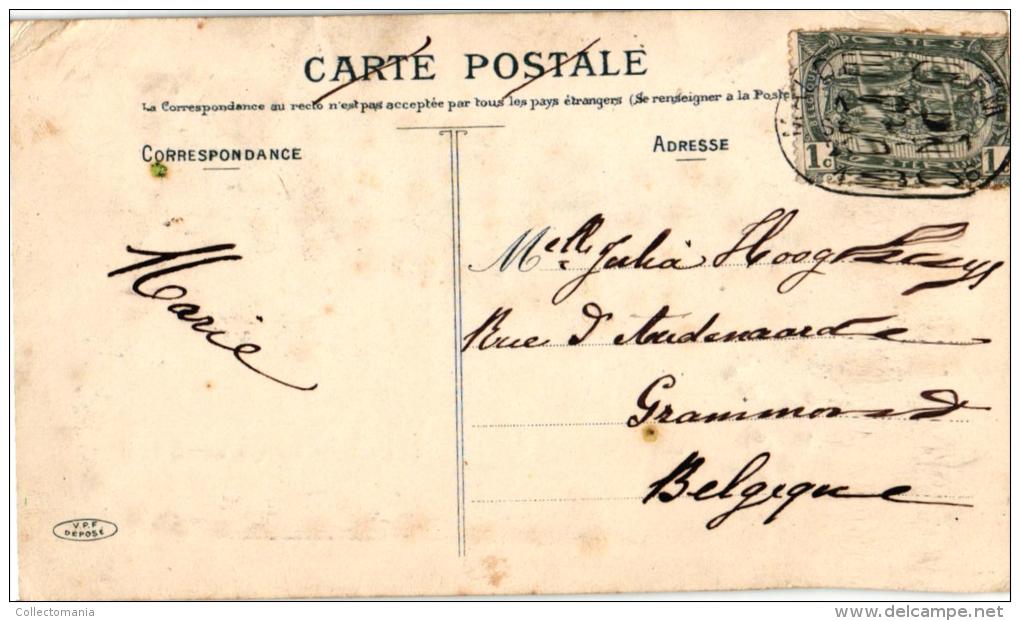 CARTE POSTALE
La Correspondance au recto n'est pas acceptée par tous les pays étrangers (Se renseigner a la Poste
CORRESPONDANCE
ADRESSE
POSTES
1c 1
Marie
Melle Julia
Rue d'Audenaarde
Grammont
Belgique
V.P.F.
DÉPOSÉ
Collectomania
www.delcampe.net